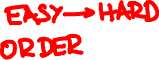 EASY→HARD
ORDER